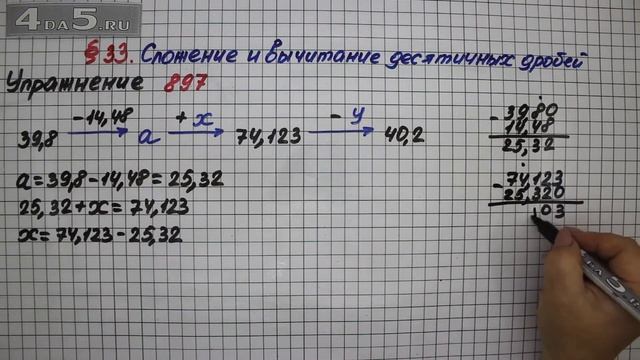 4DA5.RU
§33. Сложение и вычитание десятичных дробей
Упражнение 897
39,8 −14,48 a +x 74,123 −y 40,2
a = 39,8 − 14,48 = 25,32
25,32 + x = 74,123
x = 74,123 − 25,32
− 39,80
14,48
25,32
− 74,123
25,320
03